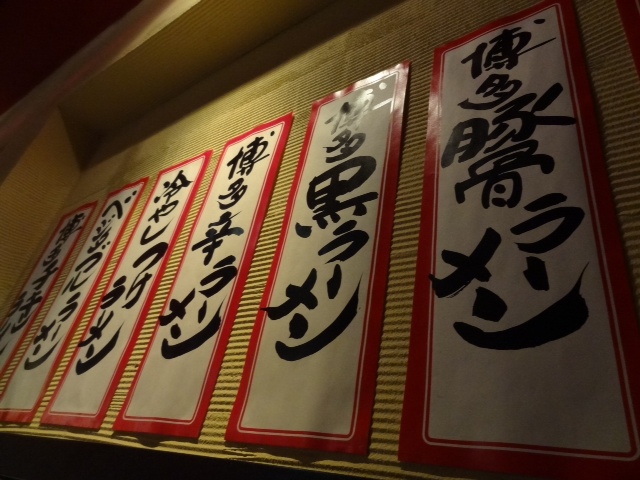 博多豚骨ラーメン
博多黒ラーメン
博多辛ラーメン
冷やしつけラーメン
ベジポタラーメン